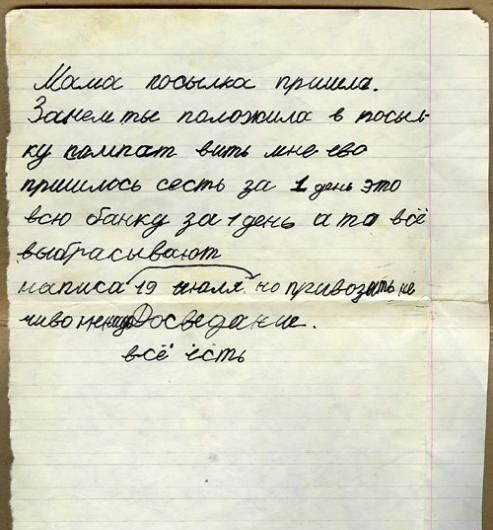 Мама посылка пришла.
Зачем ты положила в посыл-
ку кампат вить мне ево
пришлось сесть за 1 день это
всю банку за 1 день а та всё
выбрасывают
написа 19 июля. но привозить не
чиво Досведание.
всё есть